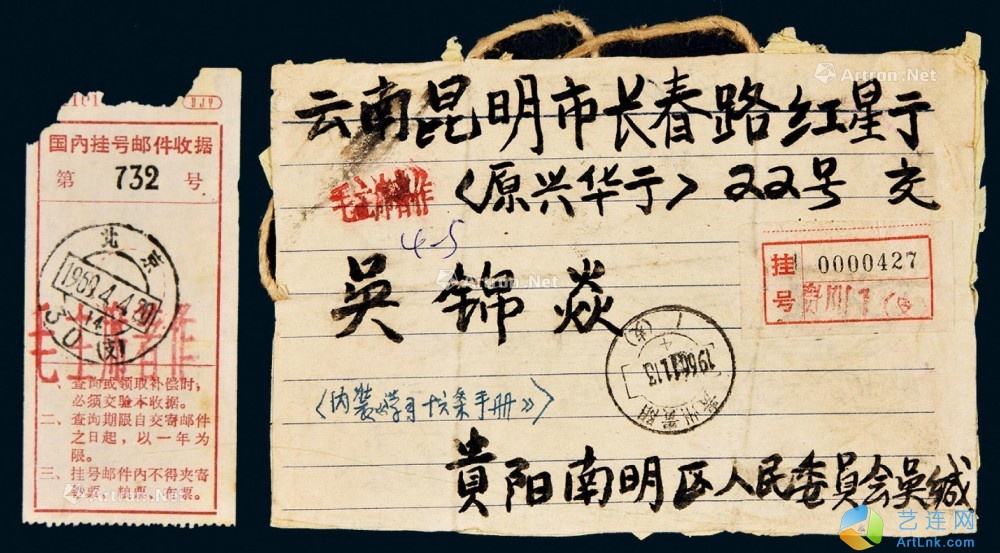 国内挂号邮件收据
第 732 号
北京
1960.4.4.20
14
30 (支)
毛主席著作
一、查询或领取补偿时，
必须交验本收据。
二、查询期限自交寄邮件
之日起，以一年为
限。
三、挂号邮件内不得夹寄
钞票、粮票、布票。
Artron.Net
云南昆明市长春路红星于
〈原兴华于〉22号 交
毛主席著作
4-5
吴锦焱
挂号 0000427
贵州
1960.11.13
贵州贵阳
〈内装《学习十六条手册》〉
貴阳南明区人民委員会吴缄
艺连网
ArtLnk.com